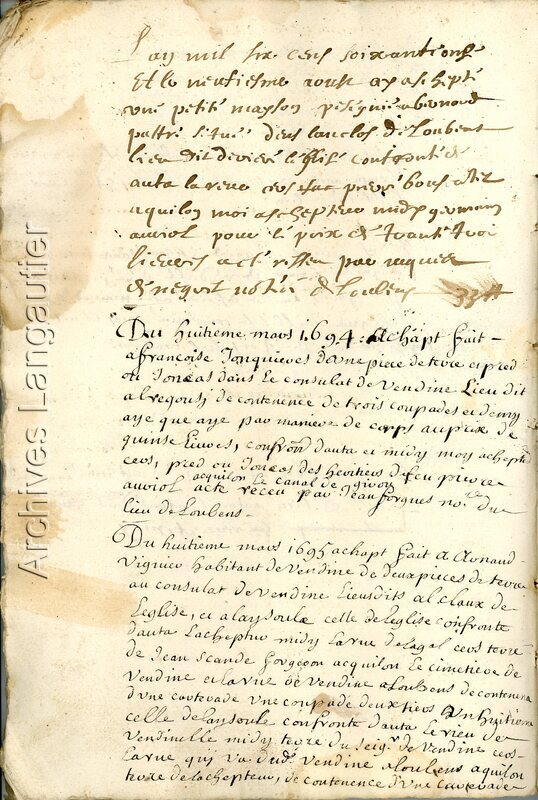 L'an mil six cens soixante onse
Et le neufiesme aoust ay aschepté
une petite mayson pesignie a bernard
pattre situee dens lanclos de Loubens
lieu dit devies l'eglise confronte de
auta la reno cers pierre
aquilon moi aschepteur midy germain
auriol pour le prix de trante troi
lieures acte recu par
de negort notaire de Loubens 33 tt
Du huitieme mars 1694: achapt fait
a francoise Jonquieres d'une piece de terre et pred
ou Joncas dans Le consulat de Vendine Lieu dit
al regousi de contenence de trois coupades et demy
aye que aye par maniere de corps au prix de
quinse Liures, confron dauta et midy moy achepte
cers, pred ou Joncas des heritiers de feu pierre
aquilon le canal de
auriol acte receu par Jean forgues no.re du
Lieu de Loubens -
Du huitieme mars 1695 achapt fait a Arnaud
Viguier habitant de Vendine de deux pieces de terre
au consulat de Vendine Lieusdits al claux de
Leglise, et a laysoule celle de leglise confronte
dauta Lachepteur midy La rue de lagal cers terre
de Jean Scande forgeron acquilon Le cimetiere de
Vendine et la rue de Vendine a Loubens de contenen
d'une carterade Une coupade deux tiers Un huitieme
celle de laysoule confronte dauta Le rieu de
Vendinelle midy terre du seig.r de Vendine cers
La rue qui va dud. Vendine a loubens aquilon
terre de lachepteur, de contenence d'Une carterade
Archives Langautier